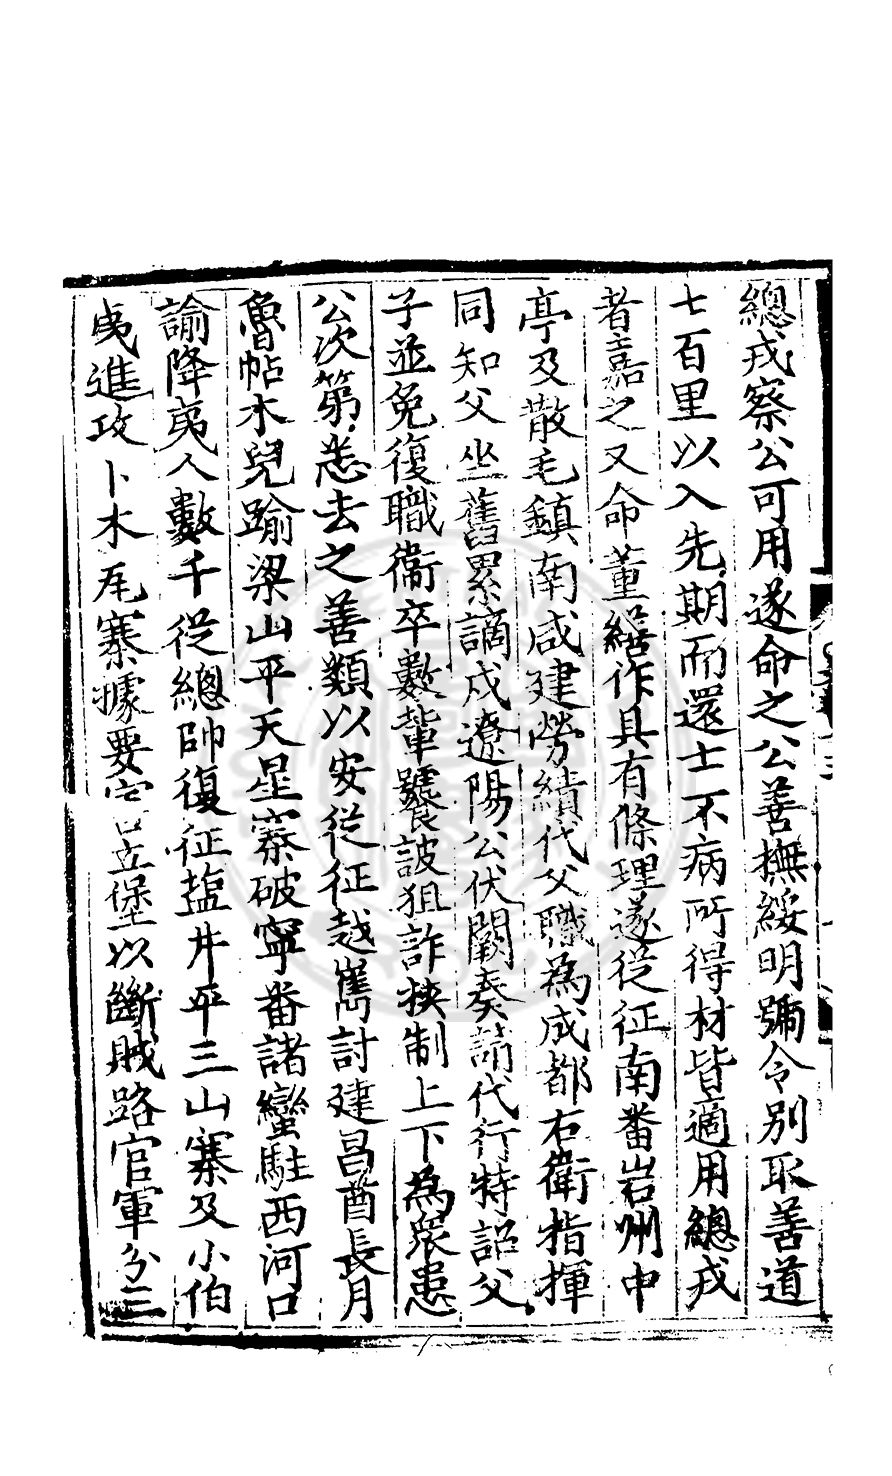 總戎察公可用遂命之公善撫綏明號令別取善道
七百里以入先期而還士不病所得材皆適用總戎
者嘉之又命董繕作具有條理遂從征南番岩州中
亭及散毛鎮南咸建勞績代父職為成都右衛指揮
同知父坐舊累謫戍遼陽公伏闕奏請代行特詔父
子並免復職衛卒數輩饕詖狙詐挾制上下為衆患
公次第悉去之善類以安從征越嶲討建昌酋長月
魯帖木兒踰梁山平天星寨破寧番諸蠻駐西河口
諭降夷人數千從總帥復征鹽井平三山寨及小伯
夷進攻卜木瓦寨據要立堡以斷賊路官軍分三